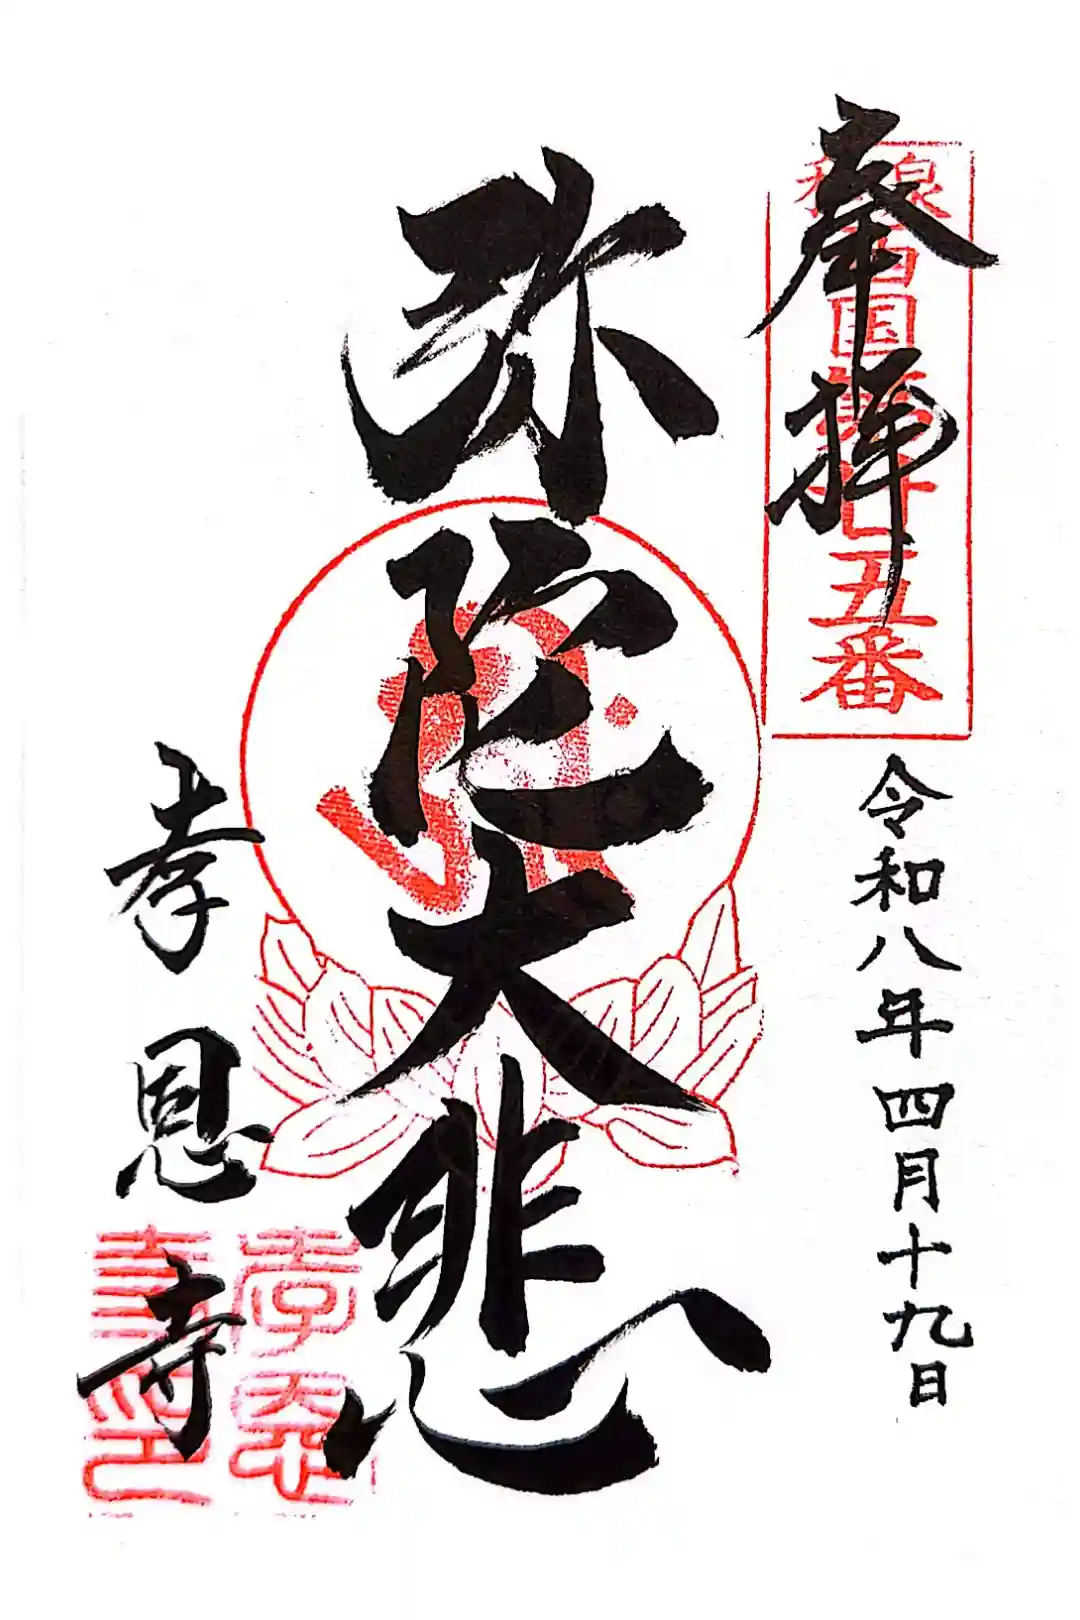 奉拝
和泉西国第廿五番
令和八年四月十九日
弥陀大悲
孝恩寺
孝恩
寺印